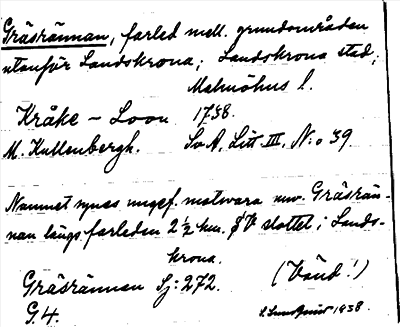 Gräsrännan, farled mell. grundområden
utanför Landskrona; Landskrona stad;
Malmöhus l.
Kråke – Loou 1738.
M. Kullenbergh. SvA, Litt. III, N:o 39.
Namnet synes ungef. motsvara nuv. Gräsrän-
nan längs farleden 2 1/2 km. SV slottet i Lands-
krona.
Gräsrännan Sj: 272. (Vänd!)
G.4. 1938.